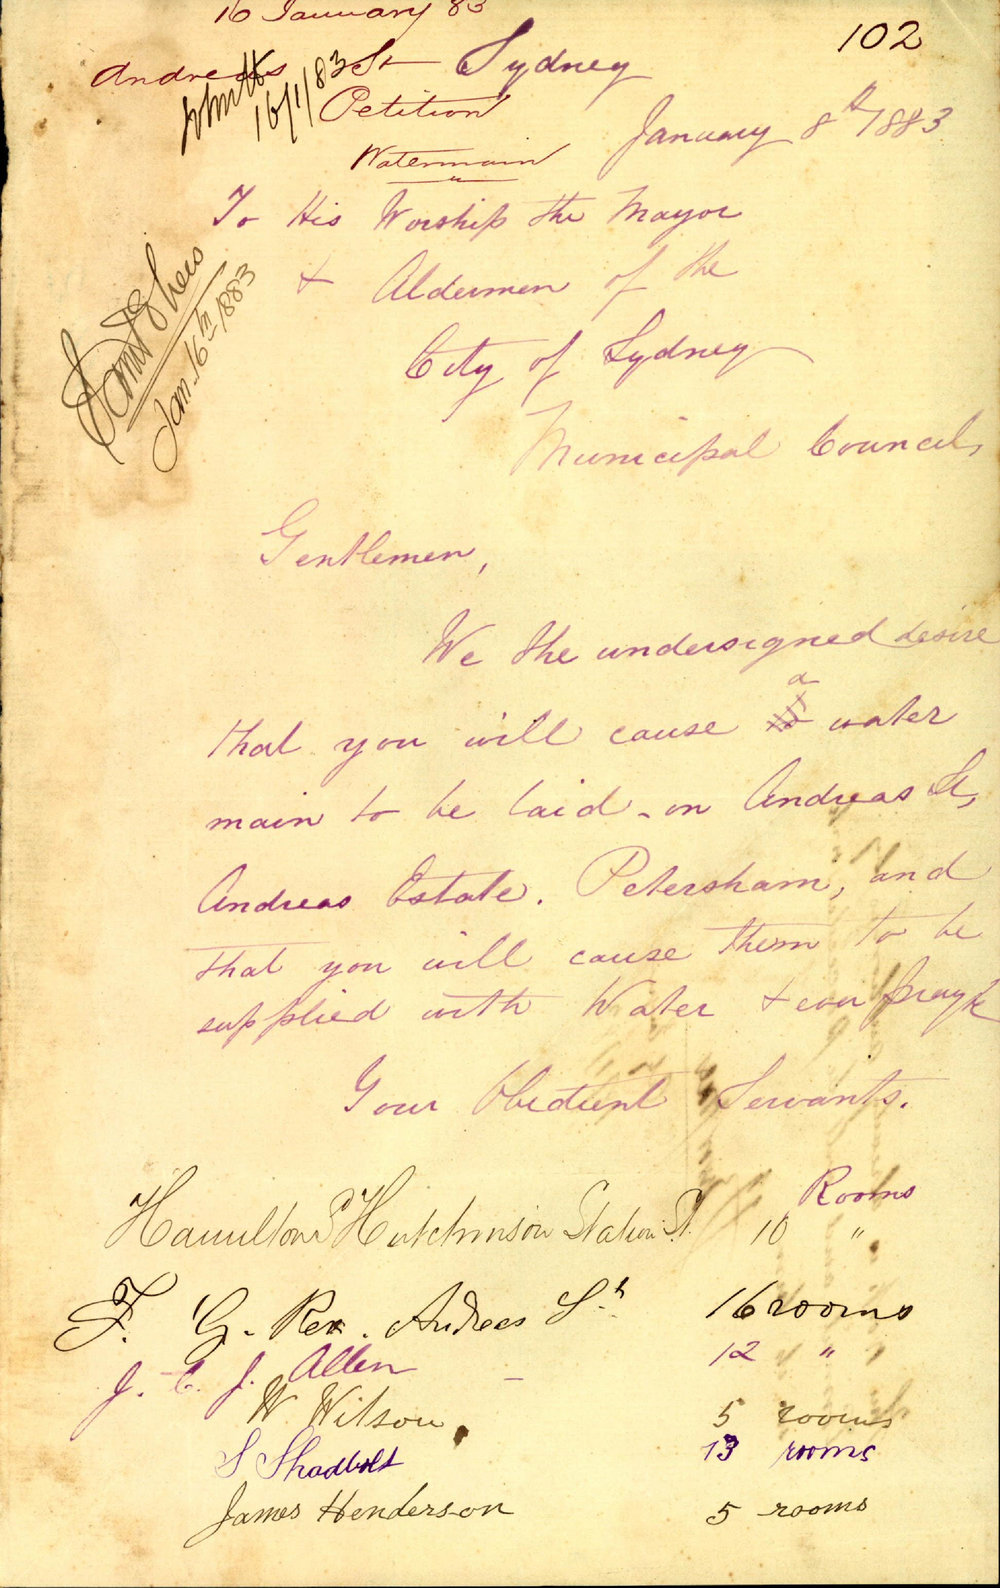 16 January 83
102
Andreas St
16/1/83
Sydney
Petition
January 8th 1883
Watermain
"
To His Worship the Mayor
& Aldermen of the
City of Sydney
Jan. 16th 1883
Municipal Council,
Gentlemen,
We the undersigned desire
a
that you will cause water
main to be laid - on Andreas St,
Andreas Estate. Petersham, and
that you will cause them to be
supplied with Water &
Your Obedient Servants.
Rooms
Hamilton P Hutchinson Station St. 10 "
F. G. Rex. Andreas St. 16 rooms
J. C. J. Allen - 12 "
W Wilson. 5 rooms
S Shadbolt 13 rooms
James Henderson 5 rooms